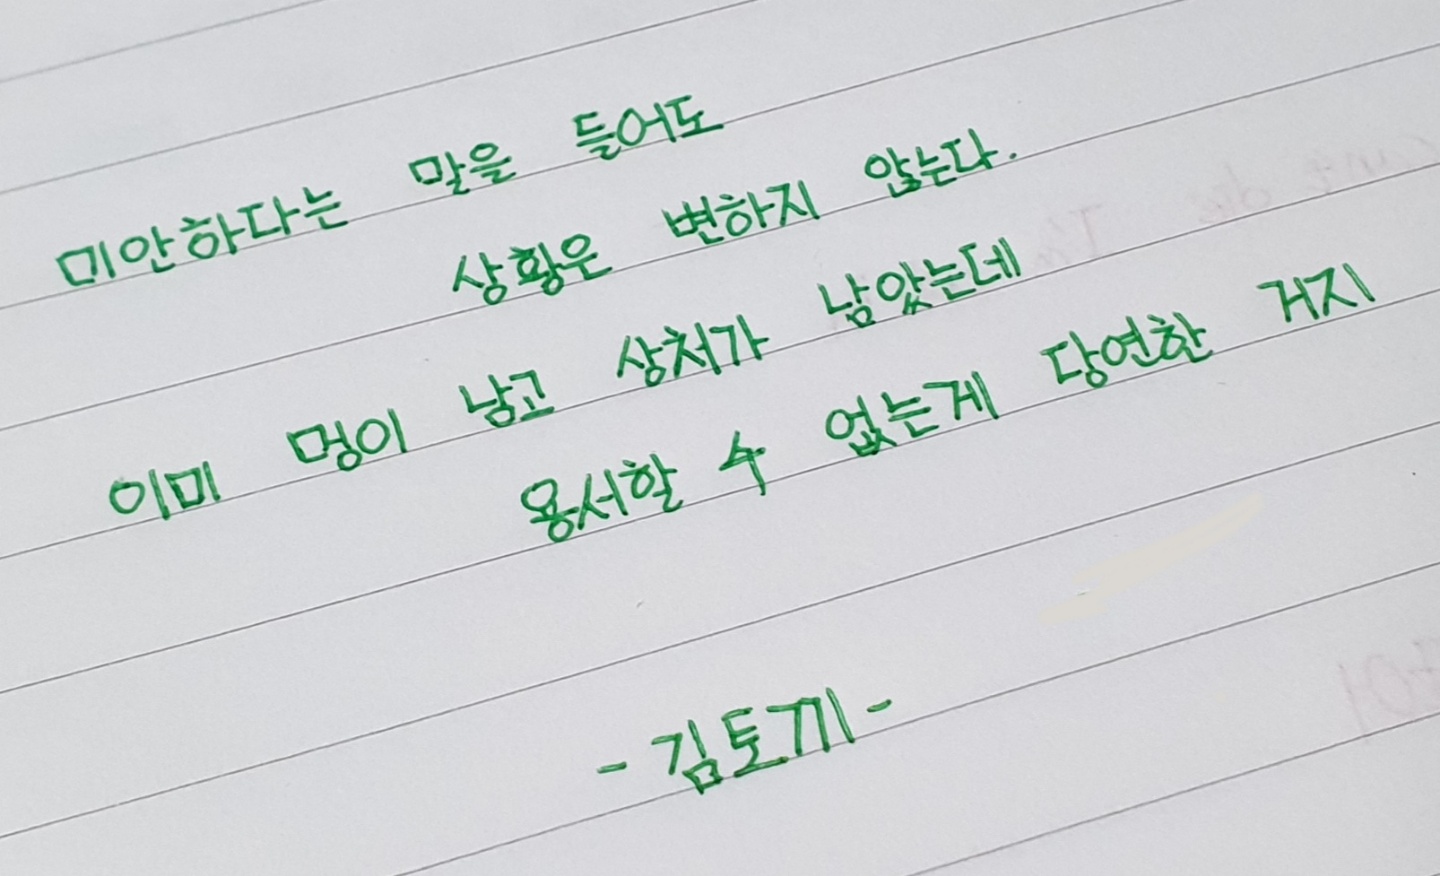 미안하다는 말을 들어도
상황은 변하지 않는다.
이미 멍이 남고 상처가 남았는데
용서할 수 없는게 당연한 거지
- 김토끼 -